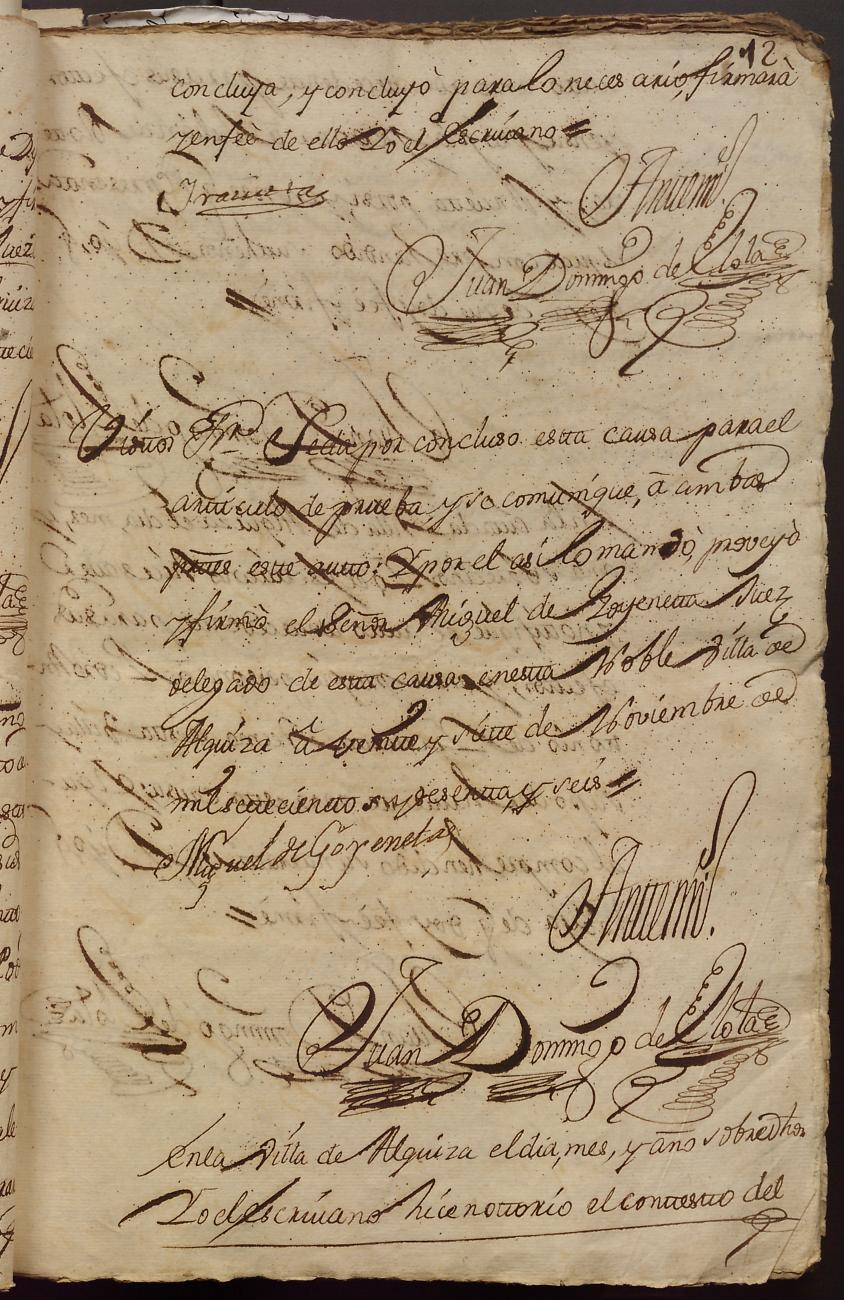 12
concluya, y concluyò para lo necesario, firmarà
y en feè de ello Yo el Escrivano =
Antemi.
Juan Domingo de
Se da por concluso esta causa para el
articulo de prueba y se comunique, à ambas
partes este auto: Y por el asi lo mandò, proveyò
y firmò el Señor Miguel de Goyenetta Juez
delegado de esta causa en esta Noble Villa de
Alquiza à veinte y siete de Noviembre de
mil settecientos y sesenta, y seis =
Miguel de Goyeneta
Antemi.
Juan Domingo de
En la Villa de Alquiza el dia, mes, y año sobredhos
Yo el Escrivano hice nottorio el contesto del